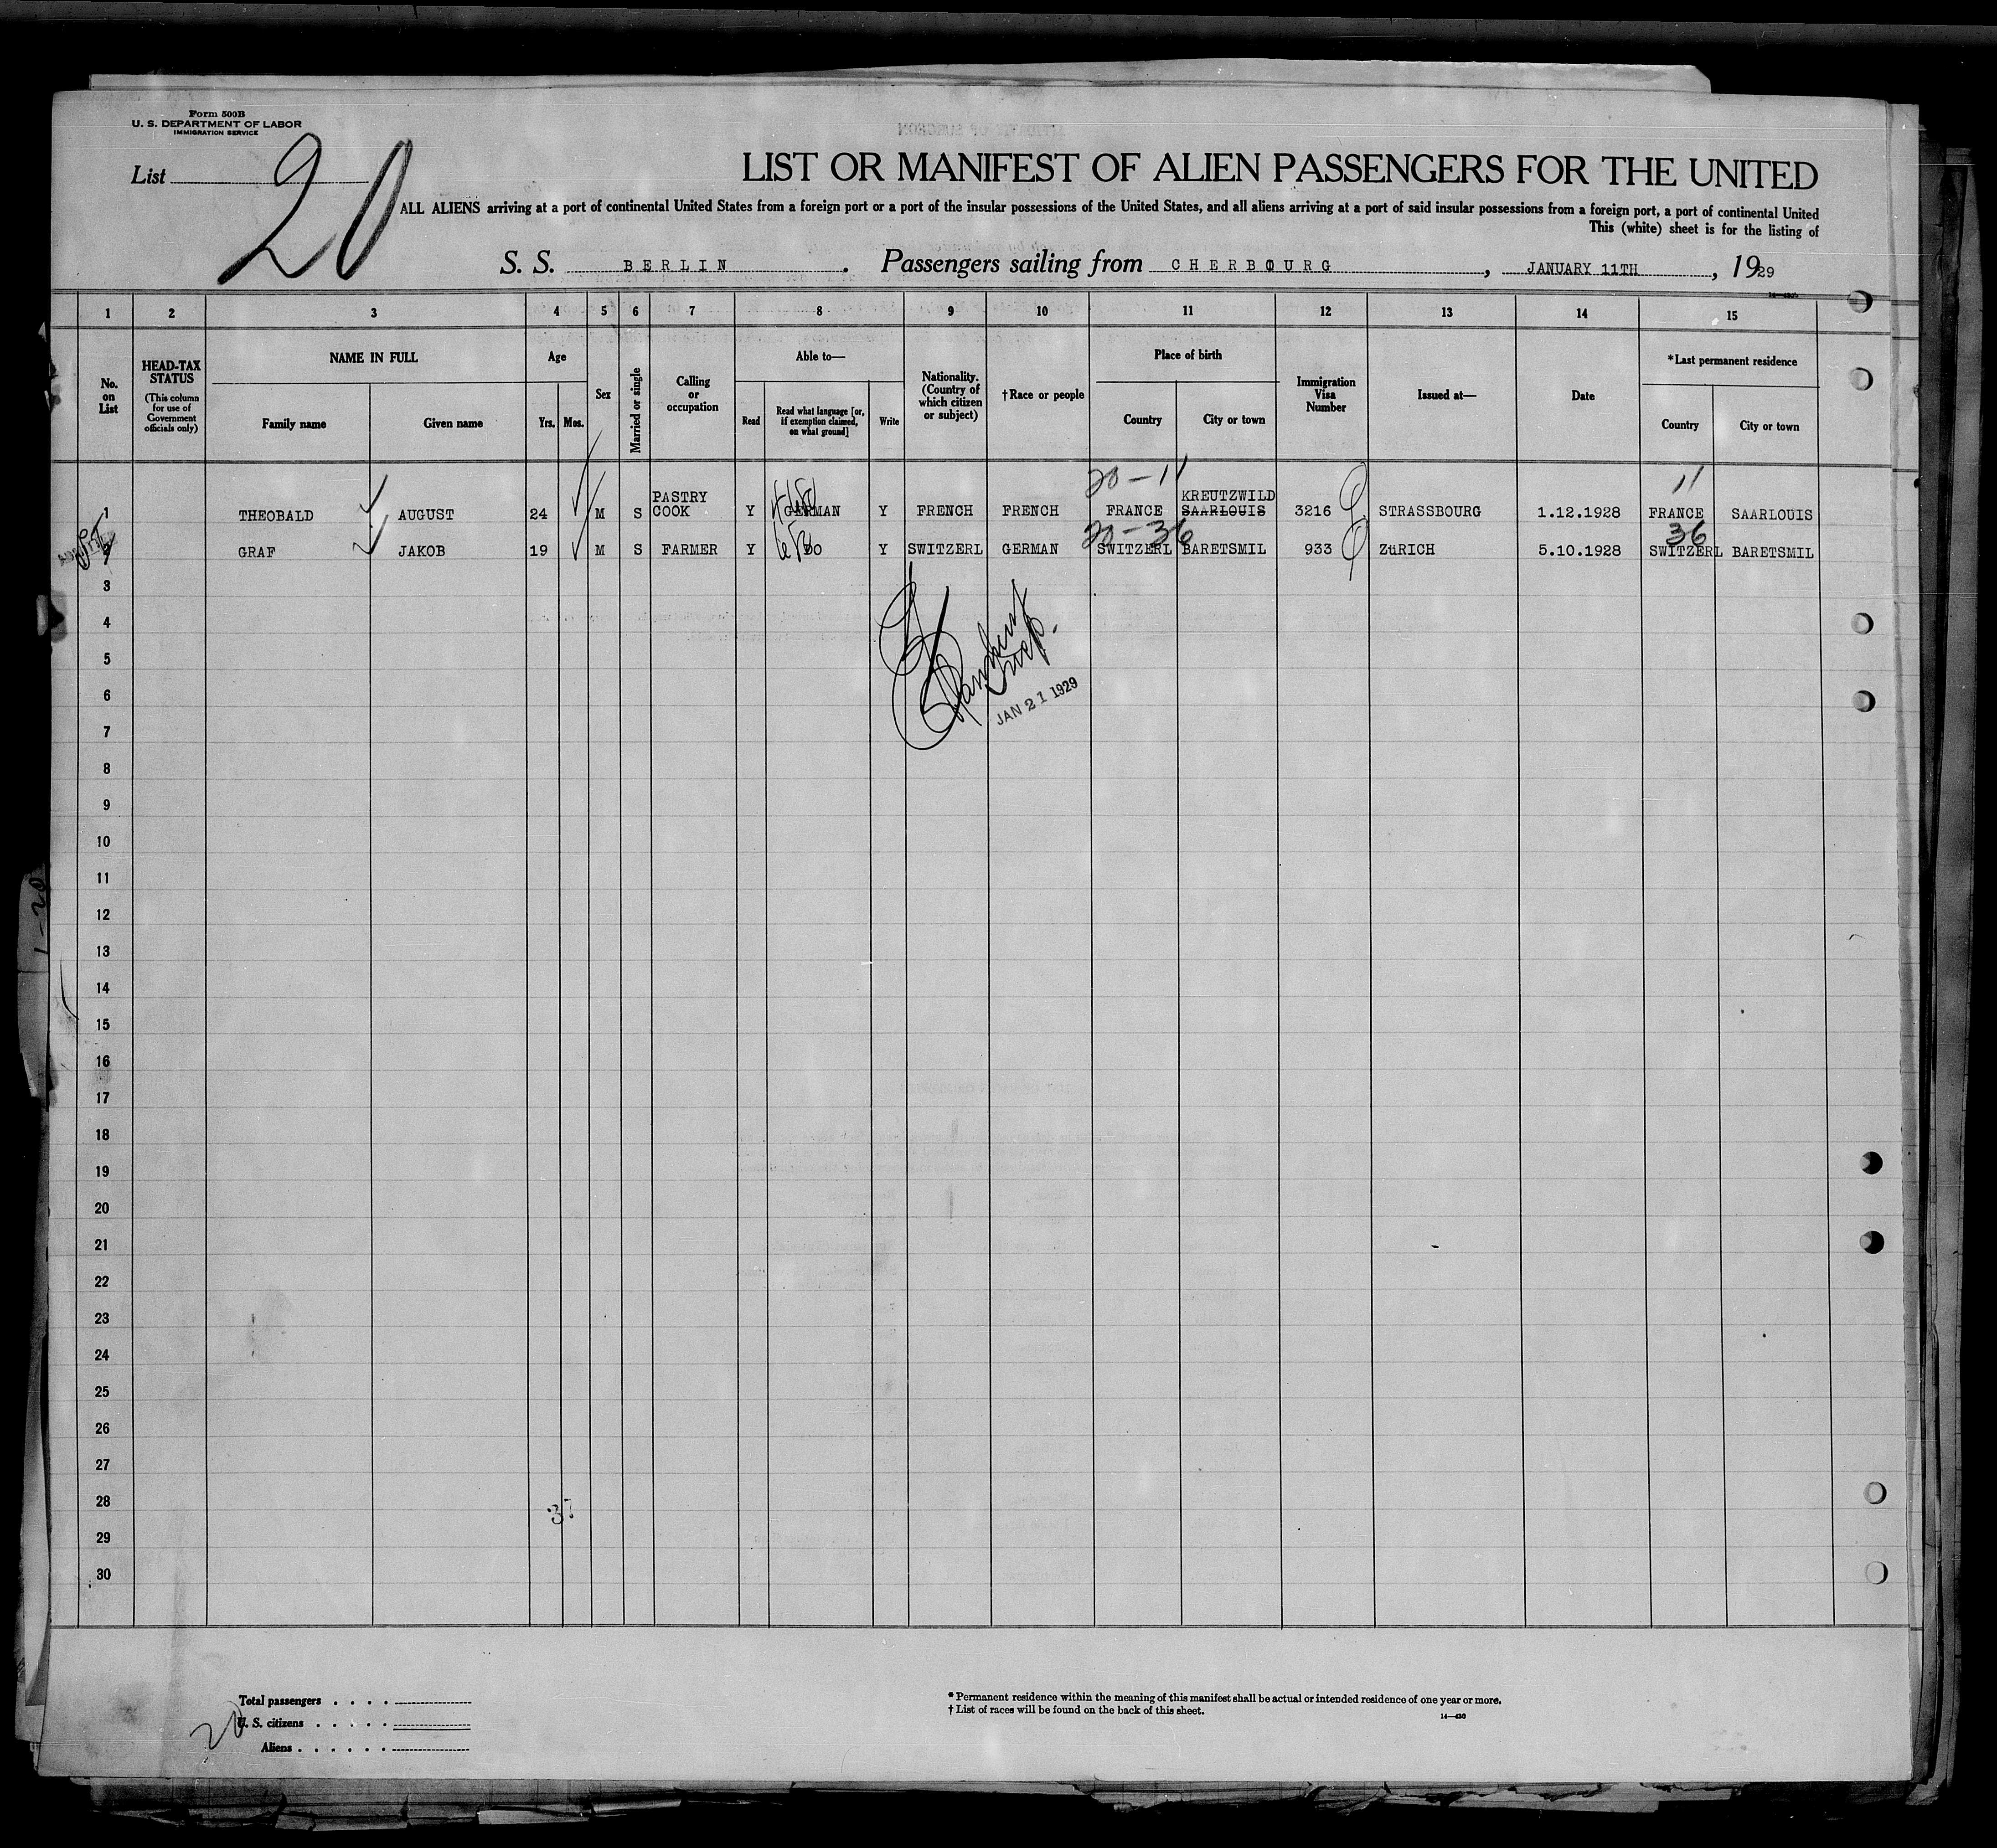 Form 500B
U. S. DEPARTMENT OF LABOR
IMMIGRATION SERVICE
List 20
LIST OR MANIFEST OF ALIEN PASSENGERS FOR THE UNITED
ALL ALIENS arriving at a port of continental United States from a foreign port or a port of the insular possessions of the United States, and all aliens arriving at a port of said insular possessions from a foreign port, a port of continental United
This (white) sheet is for the listing of
S. S. BERLIN. Passengers sailing from CHERBOURG, JANUARY 11TH, 1929
1 2 3 4 5 6 7 8 9 10 11 12 13 14 15
No. on List
HEAD-TAX STATUS (This column for use of Government officials only)
NAME IN FULL
Family name Given name
Age
Yrs. Mos.
Sex
Married or single
Calling or occupation
Able to—
Read
Read what language [or, if exemption claimed, on what ground]
Write
Nationality. (Country of which citizen or subject)
† Race or people
Place of birth
Country City or town
Immigration Visa Number
Issued at—
Date
* Last permanent residence
Country City or town
20-11 11
1 THEOBALD AUGUST 24 M S PASTRY COOK Y GERMAN Y FRENCH FRENCH FRANCE KREUTZWILD SAARLOUIS 3216 STRASSBOURG 1.12.1928 FRANCE SAARLOUIS
20-36 36
2 GRAF JAKOB 19 M S FARMER Y DO Y SWITZERL GERMAN SWITZERL BARETSMIL 933 ZüRICH 5.10.1928 SWITZERL BARETSMIL
3
4
5
6
JAN 21 1929
7
8
9
10
11
12
13
14
15
16
17
18
19
20
21
22
23
24
25
26
27
28
29
30
1-20
37
Total passengers
U. S. citizens
Aliens
20
* Permanent residence within the meaning of this manifest shall be actual or intended residence of one year or more.
† List of races will be found on the back of this sheet.
14—430